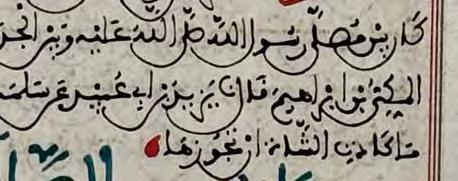 كان بين مصلى رسول الله صلى الله عليه وبين الجد
المكي بن ابراهيم قال نا يزيد بن ابي عبيد عن سلمة
ما كادت الشاة ان تجوزها